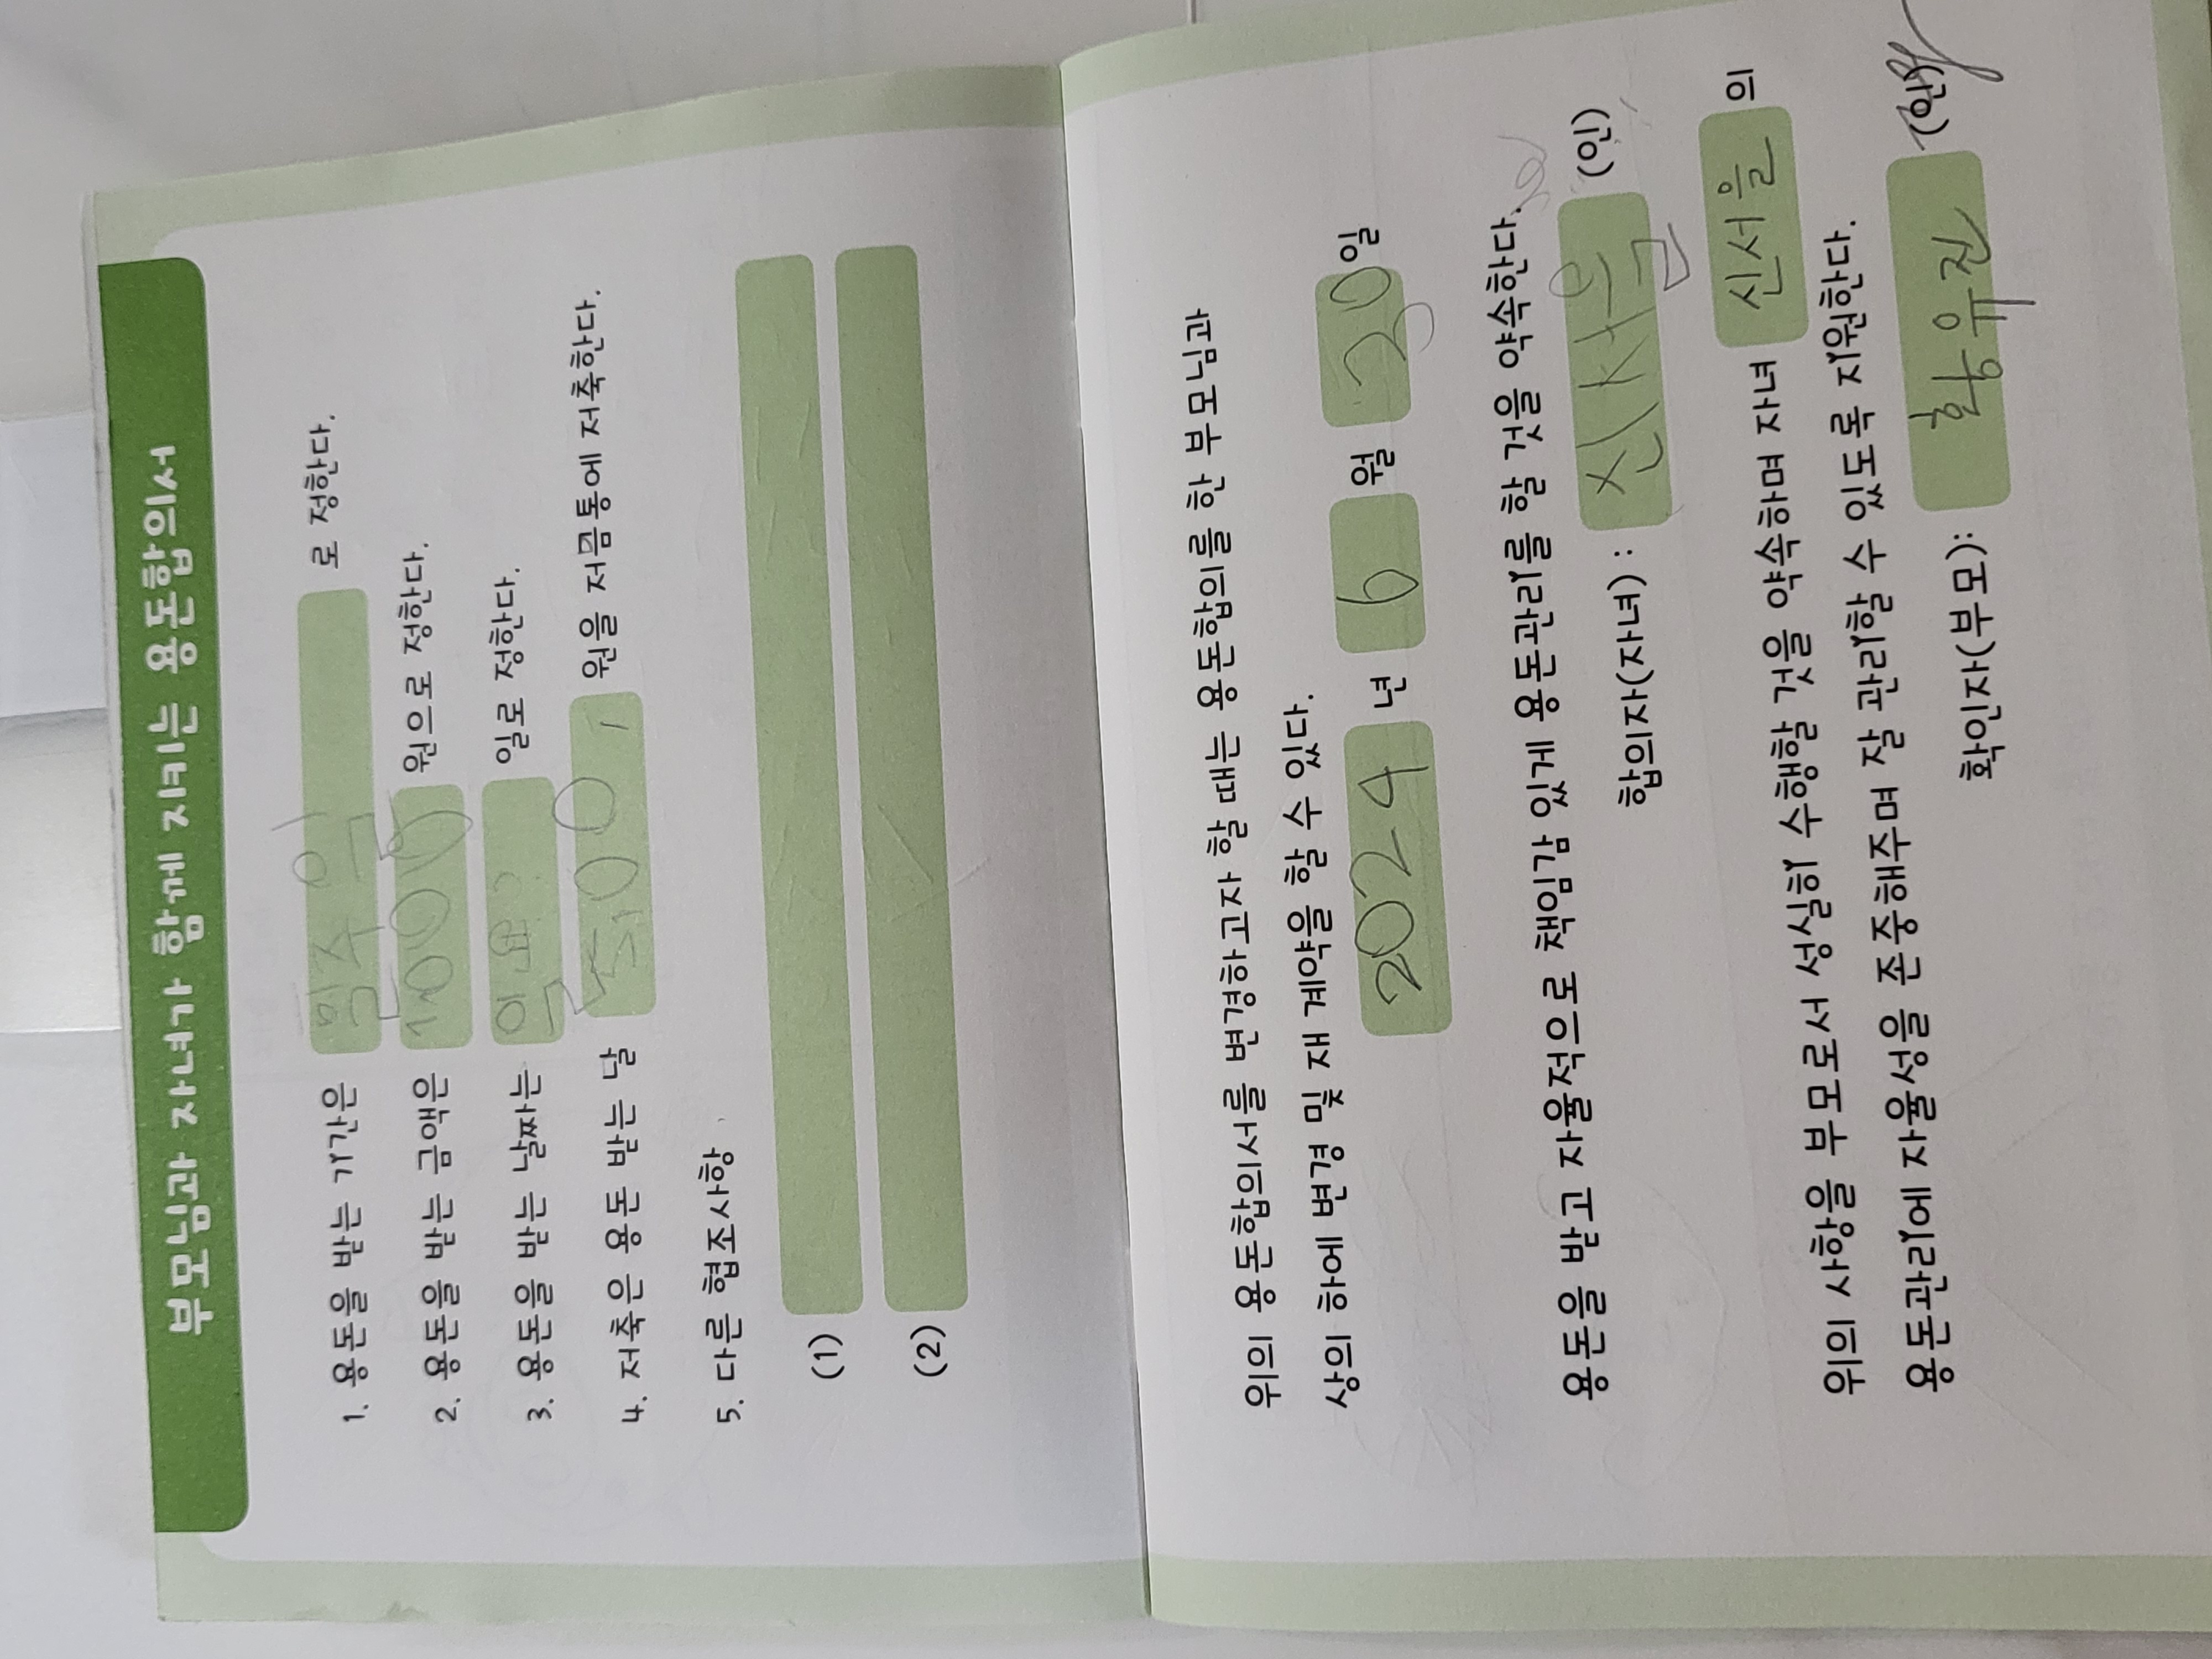 부모님과 자녀가 함께 지키는 용돈합의서
1. 용돈을 받는 기간은 일주일 로 정한다.
2. 용돈을 받는 금액은 1000 원으로 정한다.
3. 용돈을 받는 날짜는 일로 정한다.
4. 저축은 용돈 받는 달 500 원을 저금통에 저축한다.
5. 다른 협조사항
(1)
(2)
위의 용돈합의서를 변경하고자 할 때는 용돈합의를 한 부모님과
상의 하에 변경 및 재 계약을 할 수 있다.
2024 년 6 월 30 일
용돈을 받고 자율적으로 책임감 있게 용돈관리를 할 것을 약속한다.
합의자(자녀) : 신서율 (인)
위의 사항을 부모로서 성실히 수행할 것을 약속하며 자녀 신서율 의
용돈관리에 자율성을 존중해주며 잘 관리할 수 있도록 지원한다.
확인자(부모): 황유진 (인)